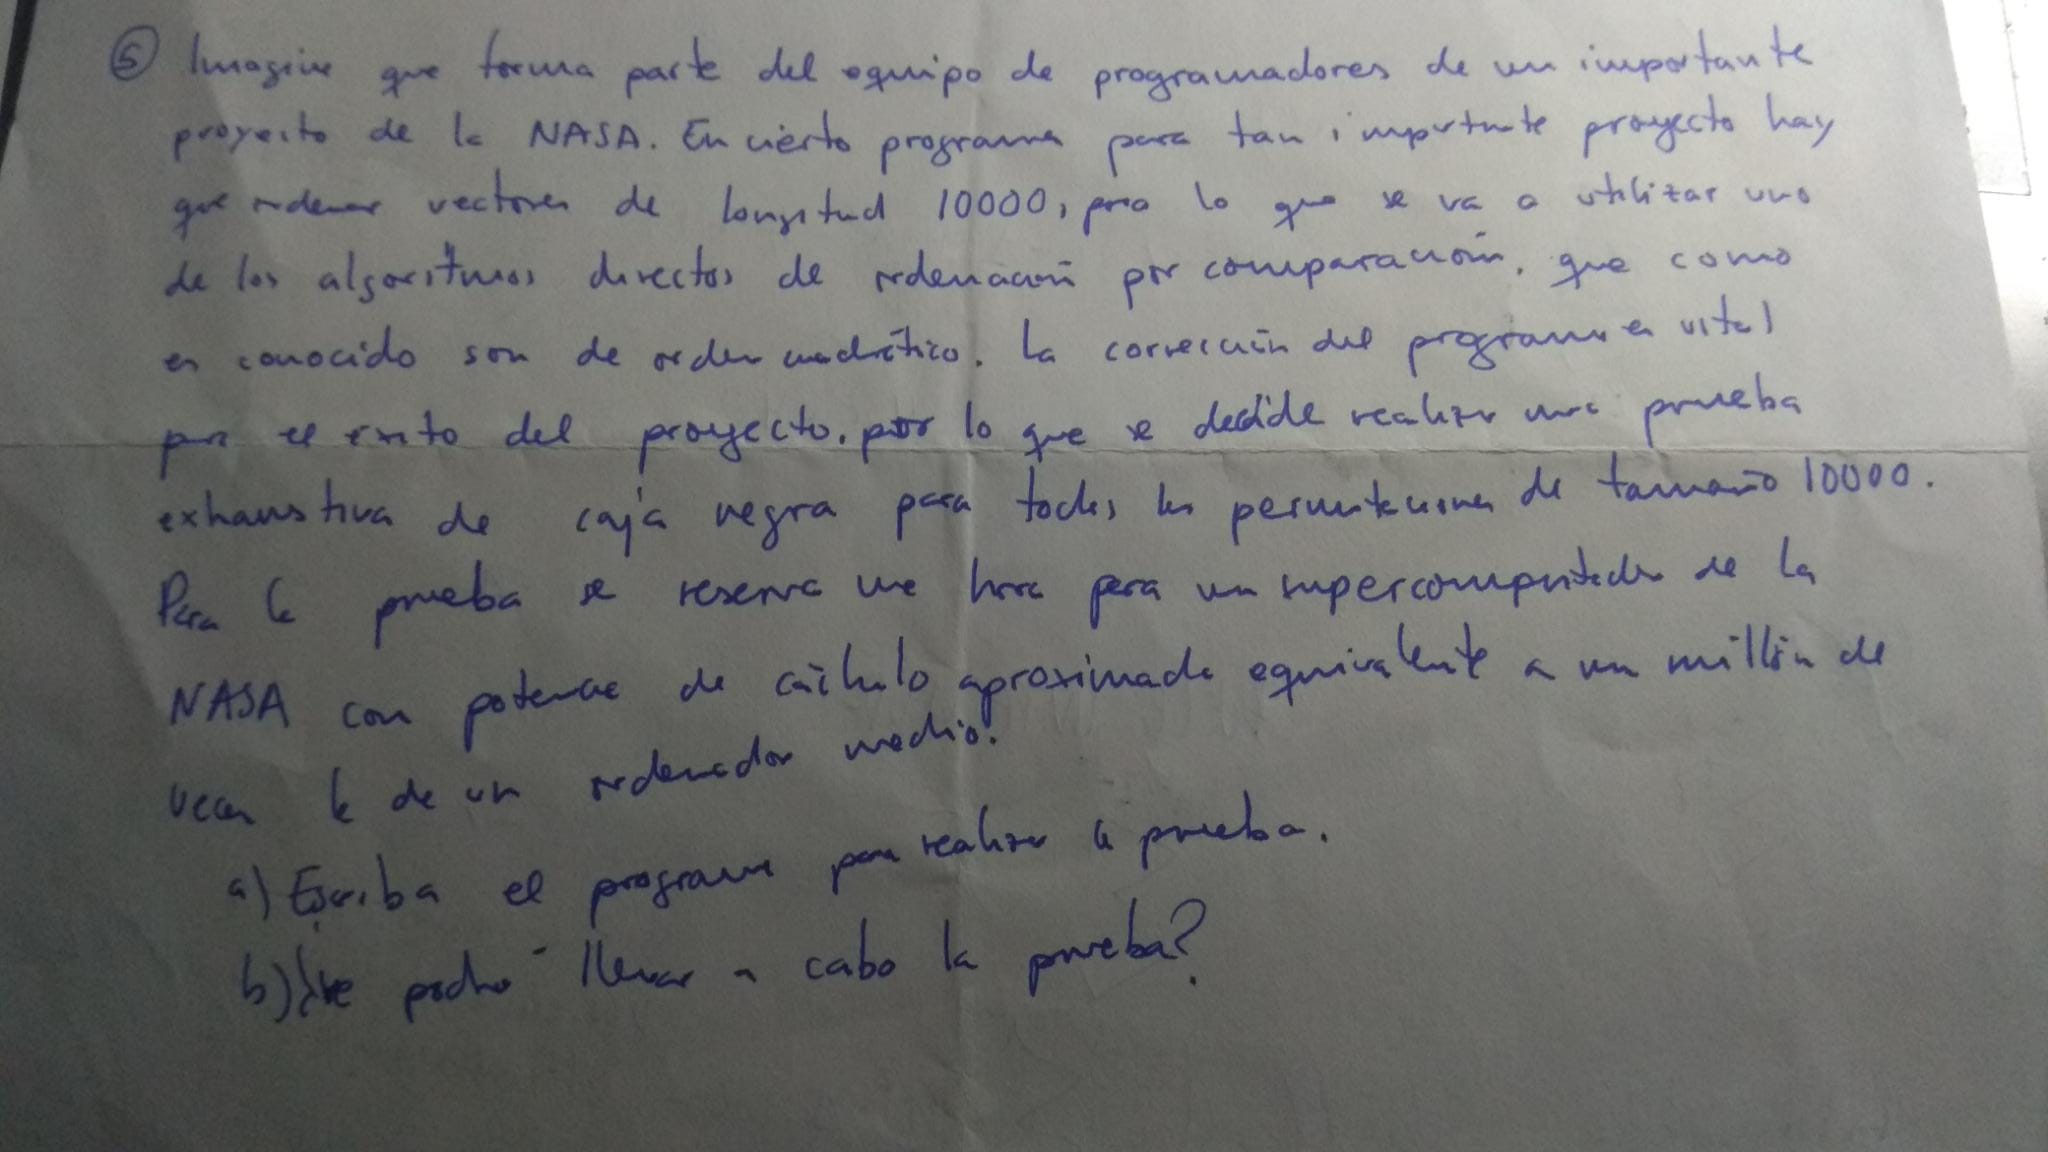 ⑤ Imagine que forma parte del equipo de programadores de un importante
proyecto de la NASA. En cierto programa para tan importante proyecto hay
que ordenar vectores de longitud 10000, para lo que se va a utilizar uno
de los algoritmos directos de ordenación por comparación, que como
es conocido son de orden cuadrático. La corrección del programa es vital
para el éxito del proyecto, por lo que se decide realizar una prueba
exhaustiva de caja negra para todas las permutaciones de tamaño 10000.
Para la prueba se reserva una hora para un supercomputador de la
NASA con potencia de cálculo aproximada equivalente a un millón de
veces la de un ordenador medio.
a) Escriba el programa para realizar la prueba.
b) ¿Se podrá llevar a cabo la prueba?